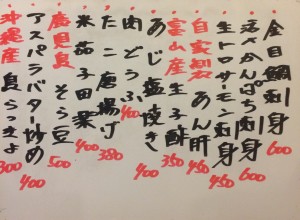 金目鯛刺身 600
活〆かんぱち刺身 600
生トロサーモン刺身 450
自家製 あん肝 450
富山産 生子酢 350
あじ塩焼き 450
肉どうふ 400
たこ唐揚げ 380
米茄子田楽 400
鹿児島 そら豆 500
アスパラバター炒め 400
沖縄産 島らっきょ 300